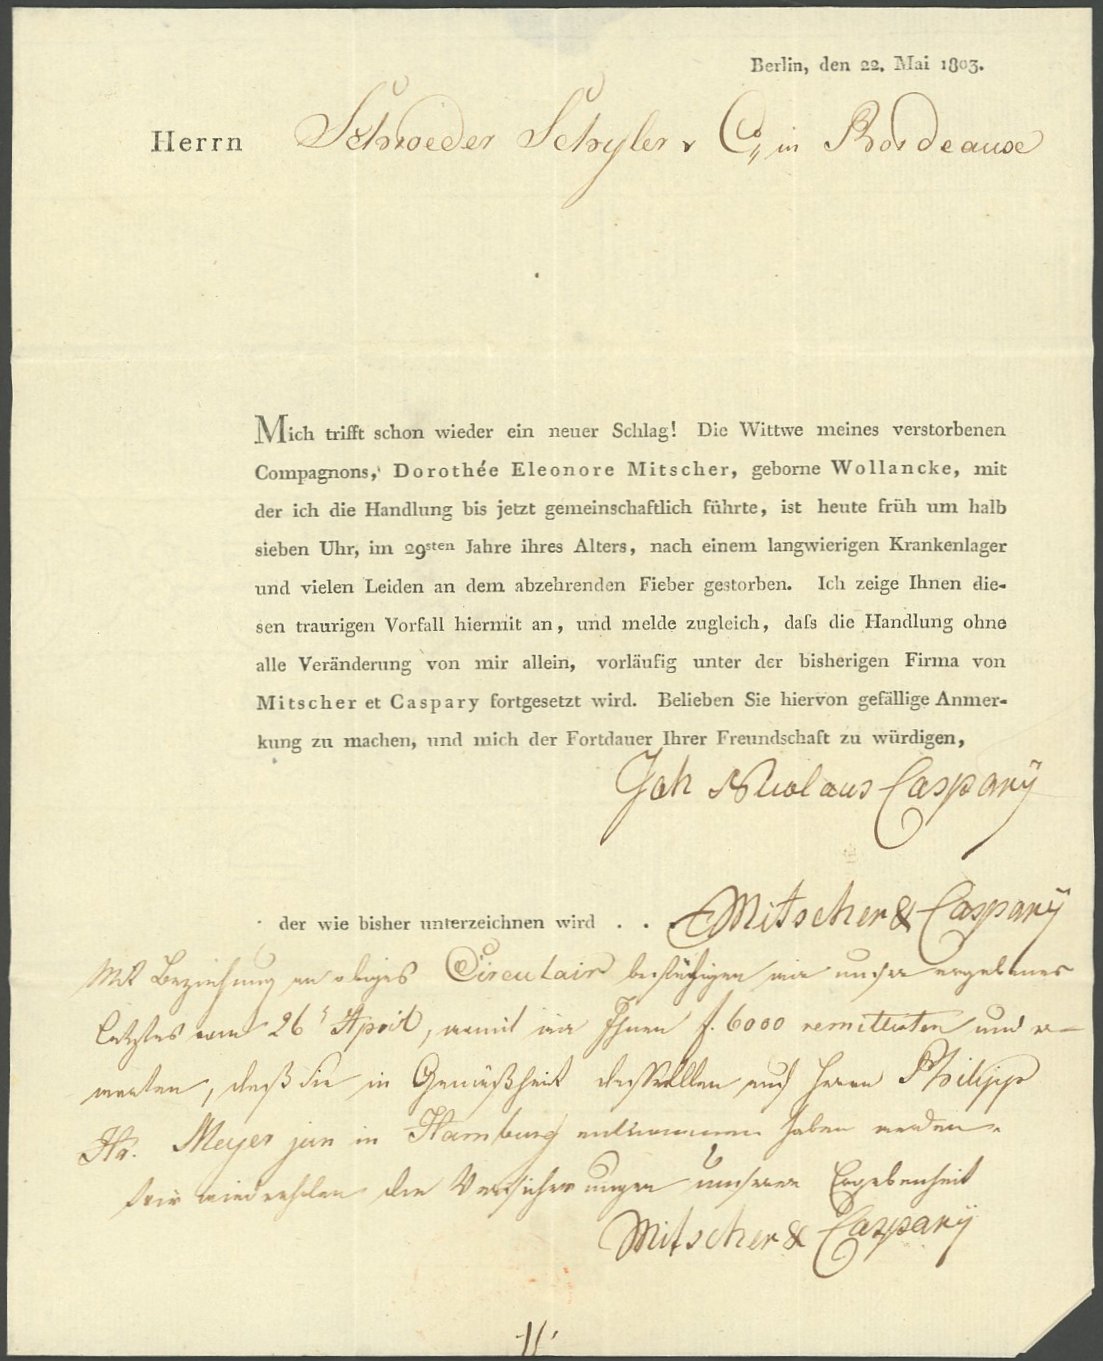 Berlin, den 22. Mai 1803.
Herrn Schroeder Schyler & Co, in Bordeaux
Mich trifft schon wieder ein neuer Schlag! Die Wittwe meines verstorbenen
Compagnons, Dorothée Eleonore Mitscher, geborne Wollancke, mit
der ich die Handlung bis jetzt gemeinschaftlich führte, ist heute früh um halb
sieben Uhr, im 29sten Jahre ihres Alters, nach einem langwierigen Krankenlager
und vielen Leiden an dem abzehrenden Fieber gestorben. Ich zeige Ihnen die-
sen traurigen Vorfall hiermit an, und melde zugleich, daſs die Handlung ohne
alle Veränderung von mir allein, vorläufig unter der bisherigen Firma von
Mitscher et Caspary fortgesetzt wird. Belieben Sie hiervon gefällige Anmer-
kung zu machen, und mich der Fortdauer Ihrer Freundschaft zu würdigen,
Joh Nicolaus Caspary
der wie bisher unterzeichnen wird . . Mitscher & Caspary
Mit Beziehung an obiges Circulair bestätigen wir unser ergebenes
letztes vom 26t April, womit wir Ihnen f. 6000 remittirten und er-
warten, daß Sie in Gemäßheit desselben auf Herrn Philipp
Hr. Meyer jun in Hamburg entnommen haben werden.
Wir wiederholen die Versicherungen unserer Ergebenheit
Mitscher & Caspary